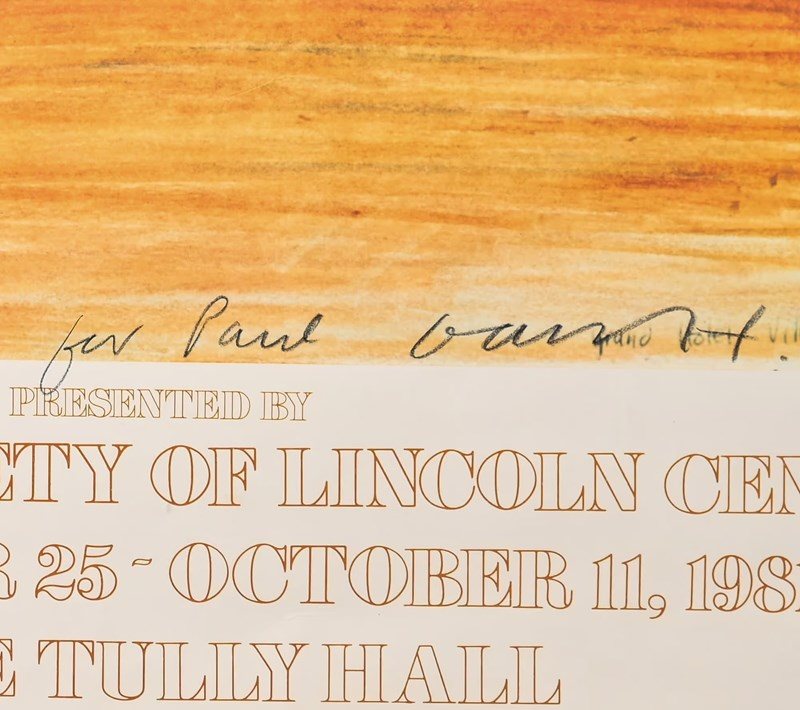 for Paul David H.
Grand Hotel Vi
PRESENTED BY
ETY OF LINCOLN CEN
R 25 - OCTOBER 11, 198
E TULLY HALL